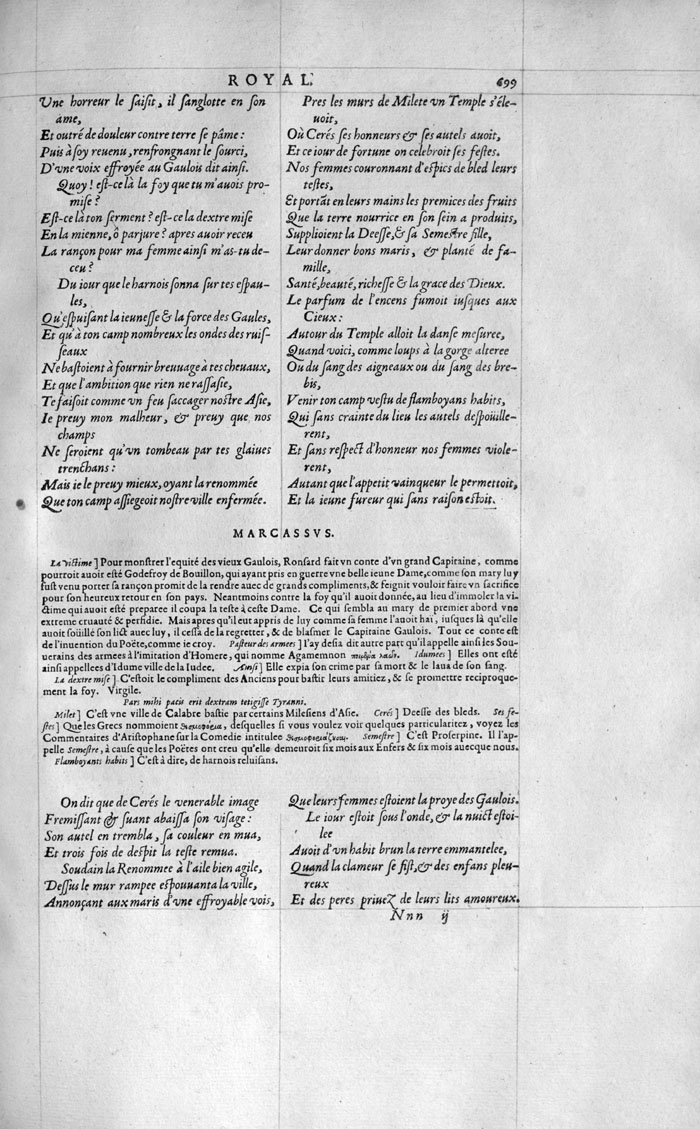 ROYAL.
699
Vne horreur le saisit, il sanglotte en son
ame,
Et outré de douleur contre terre se pâme:
Puis à soy reuenu, renfrongnant le sourci,
D'vne voix effroyée au Gaulois dit ainsi.
Quoy! est-ce là la foy que tu m'auois pro-
mise?
Est-ce là ton serment? est-ce la dextre mise
En la mienne, ô parjure? apres auoir receu
La rançon pour ma femme ainsi m'as-tu de-
ceu?
Du iour que le harnois sonna sur tes espau-
les,
Qu'espuisant la ieunesse & la force des Gaules,
Et qu'à ton camp nombreux les ondes des ruis-
seaux
Ne bastoient à fournir breuuage à tes cheuaux,
Et que l'ambition que rien ne rassasie,
Te faisoit comme vn feu saccager nostre Asie,
Ie preuy mon malheur, & preuy que nos
champs
Ne seroient qu'vn tombeau par tes glaiues
trenchans:
Mais ie le preuy mieux, oyant la renommée
Que ton camp assiegeoit nostre ville enfermée.
Pres les murs de Milete vn Temple s'éle-
uoit,
Où Cerés ses honneurs & ses autels auoit,
Et ce iour de fortune on celebroit ses festes.
Nos femmes couronnant d'espics de bled leurs
testes,
Et portãt en leurs mains les premices des fruits
Que la terre nourrice en son sein a produits,
Supplioient la Deesse, & sa Semestre fille,
Leur donner bons maris, & planté de fa-
mille,
Santé, beauté, richesse & la grace des Dieux.
Le parfum de l'encens fumoit iusques aux
Cieux:
Autour du Temple alloit la danse mesuree,
Quand voici, comme loups à la gorge alteree
Ou du sang des aigneaux ou du sang des bre-
bis,
Venir ton camp vestu de flamboyans habits,
Qui sans crainte du lieu les autels despoüille-
rent,
Et sans respect d'honneur nos femmes viole-
rent,
Autant que l'appetit vainqueur le permettoit,
Et la ieune fureur qui sans raison estoit.
MARCASSVS.
La victime] Pour monstrer l'equité des vieux Gaulois, Ronsard fait vn conte d'vn grand Capitaine, comme
pourroit auoir esté Godefroy de Bouillon, qui ayant pris en guerre vne belle ieune Dame, comme son mary luy
fust venu porter sa rançon promit de la rendre auec de grands compliments, & feignit vouloir faire vn sacrifice
pour son heureux retour en son pays. Neantmoins contre la foy qu'il auoit donnée, au lieu d'immoler la vi-
ctime qui auoit esté preparee il coupa la teste à ceste Dame. Ce qui sembla au mary de premier abord vne
extreme cruauté & perfidie. Mais apres qu'il eut appris de luy comme sa femme l'auoit haï, iusques là qu'elle
auoit soüillé son lict auec luy, il cessa de la regretter, & de blasmer le Capitaine Gaulois. Tout ce conte est
de l'inuention du Poëte, comme ie croy. Pasteur des armees] I'ay desia dit autre part qu'il appelle ainsi les Sou-
uerains des armees à l'imitation d'Homere, qui nomme Agamemnon ποιμένα λαῶν. Idumees] Elles ont esté
ainsi appellees d'Idume ville de la Iudee. Ainsi] Elle expia son crime par sa mort & le laua de son sang.
La dextre mise] C'estoit le compliment des Anciens pour bastir leurs amitiez, & se promettre reciproque-
ment la foy. Virgile.
Pars mihi pacis erit dextram tetigisse Tyranni.
Milet] C'est vne ville de Calabre bastie par certains Milesiens d'Asie. Cerés] Deesse des bleds. Ses fe-
stes] Que les Grecs nommoient Θεσμοφόρια, desquelles si vous voulez voir quelques particularitez, voyez les
Commentaires d'Aristophane sur la Comedie intitulee Semestre] C'est Proserpine. Il l'ap-
pelle Semestre, à cause que les Poëtes ont creu qu'elle demeuroit six mois aux Enfers & six mois auecque nous.
Flamboyants habits] C'est à dire, de harnois reluisans.
On dit que de Cerés le venerable image
Fremissant & suant abaissa son visage:
Son autel en trembla, sa couleur en mua,
Et trois fois de despit la teste remua.
Soudain la Renommee à l'aile bien agile,
Dessus le mur rampee espouuanta la ville,
Annonçant aux maris d'vne effroyable vois,
Que leurs femmes estoient la proye des Gaulois.
Le iour estoit sous l'onde, & la nuict estoi-
lee
Auoit d'vn habit brun la terre emmantelee,
Quand la clameur se fist, & des enfans pleu-
reux
Et des peres priuez de leurs lits amoureux.
Nnn ij